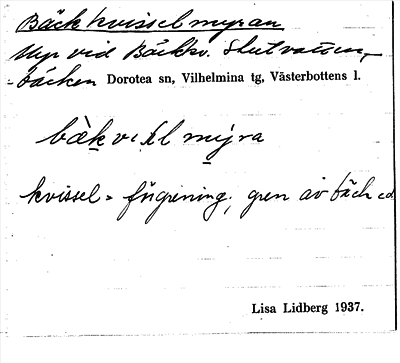 Bäckkvisselmyran
Myr vid Bäckkv. Slutvatten-
-bäcken Dorotea sn, Vilhelmina tg, Västerbottens l.
kvissel = förgrening, gren av bäck e.d.
Lisa Lidberg 1937.